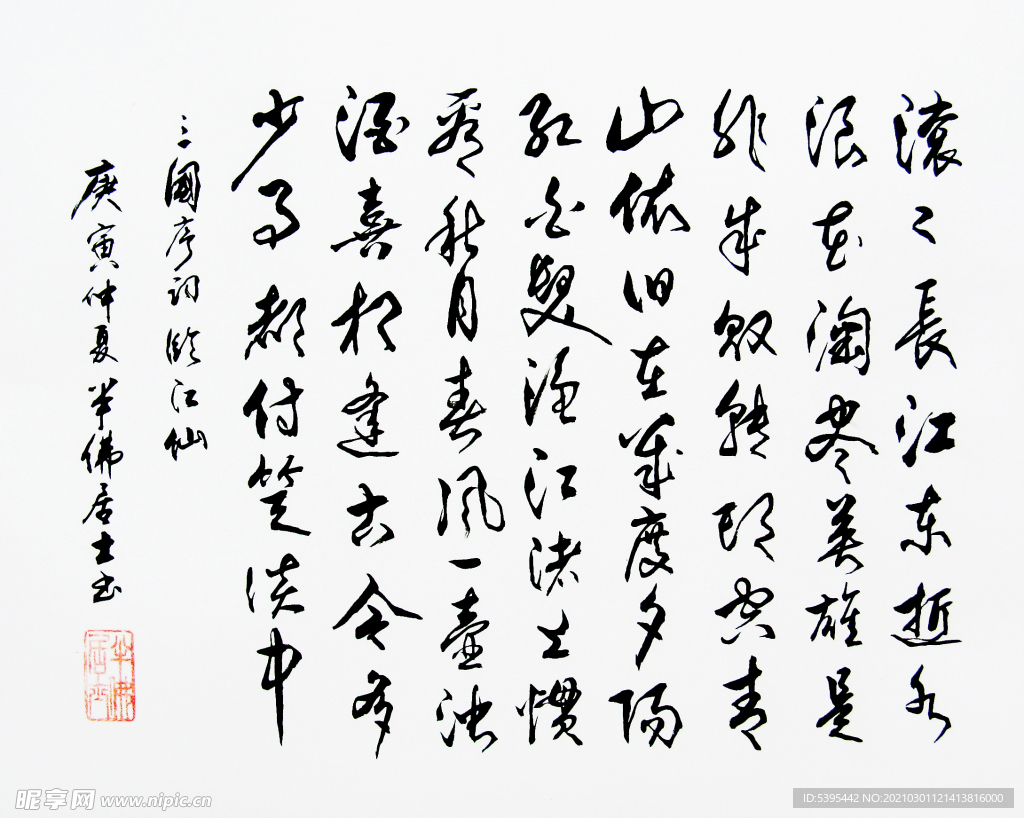 滚〻長江东逝水
浪花淘尽英雄是
非成败转頭空青
山依旧在几度夕陽
红白髮渔江渚上惯
看秋月春风一壶浊
酒喜相逢古今多
少事都付笑谈中
三國序词临江仙
庚寅仲夏半佛居士书
半佛居士
昵享网 www.nipic.cn
ID:5395442 NO:20210301121413816000